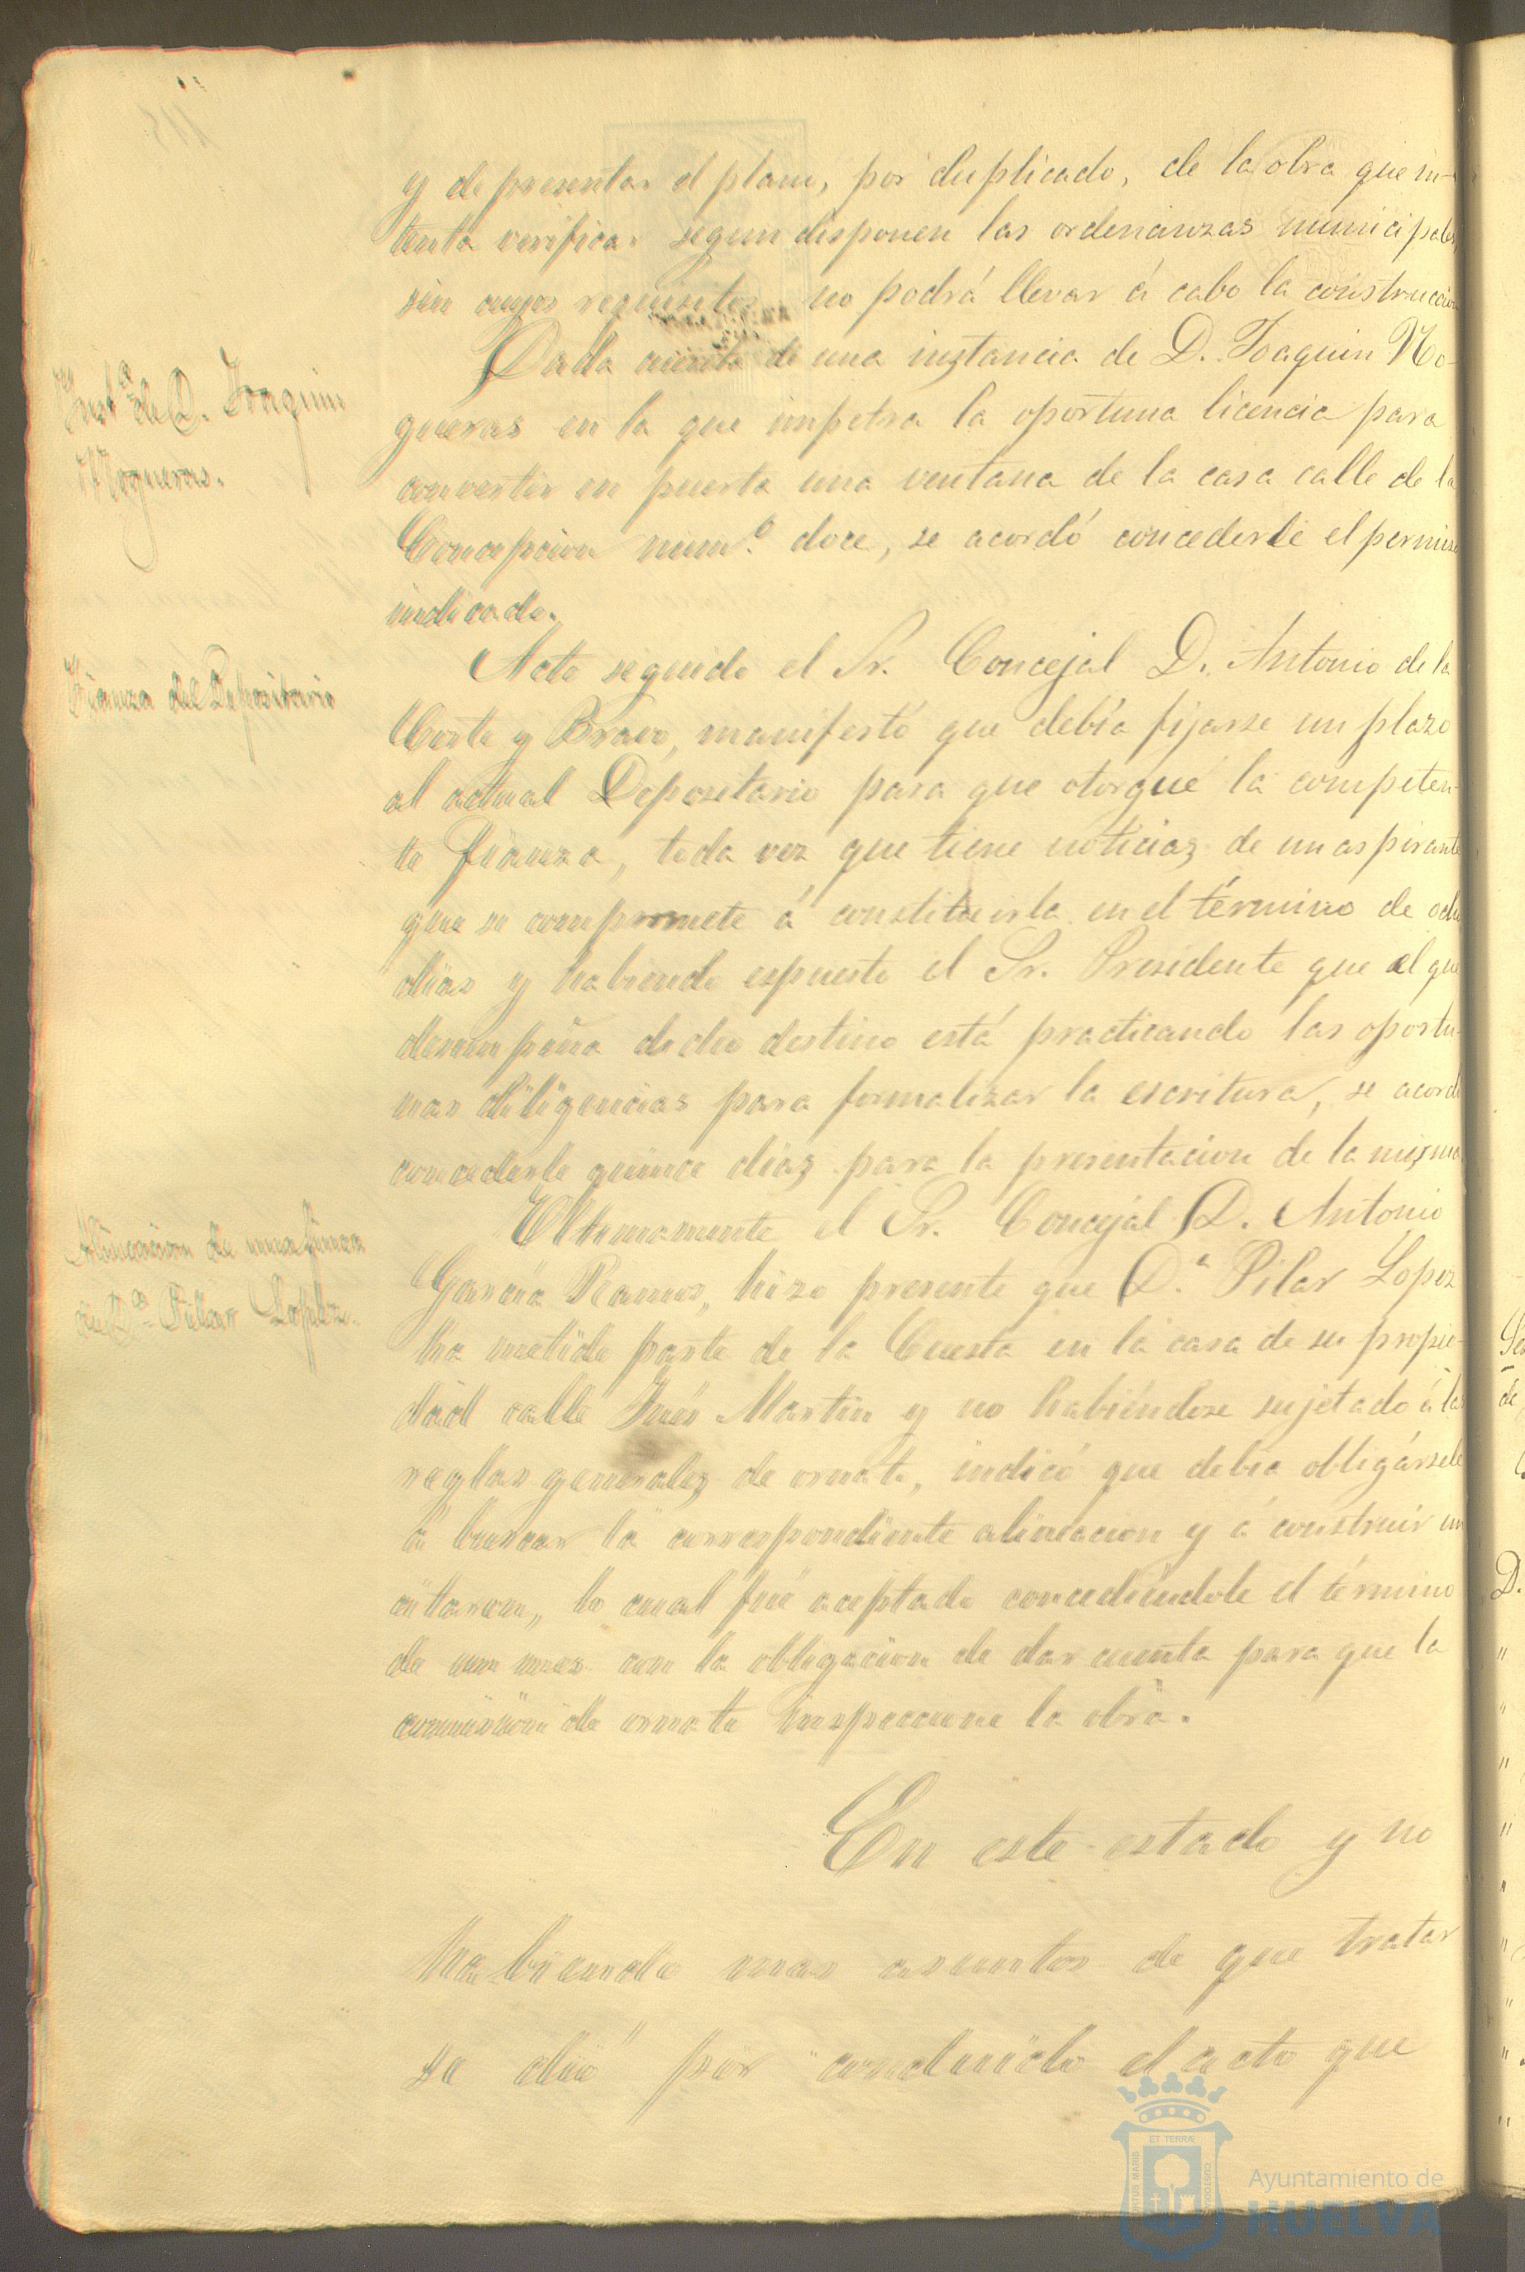 y de presentar el plano, por duplicado, de la obra que in-
tenta verificar segun disponen las ordenanzas municipales,
sin cuyos requisitos no podrá llevar á cabo la construccion
Inst.ª de D. Joaquin
Nogueras.
Dada cuenta de una instancia de D. Joaquin No-
gueras en la que impetra la oportuna licencia para
convertir en puerta una ventana de la casa calle de la
Concepcion núm.º doce, se acordó concederle el permiso
indicado.
Fianza del Depositario
Acto seguido el Sr. Concejal D. Antonio de la
Corte y Bravo, manifestó que debía fijarse un plazo
al actual Depositario para que otorgue la competen-
te fianza, toda vez que tiene noticias de un aspirante
que se compromete á constituirla en el término de ocho
dias y habiendo espuesto el Sr. Presidente que el que
desempeña dicho destino está practicando las oportu-
nas diligencias para formalizar la escritura, se acordó
concederle quince dias para la presentacion de la misma
Alineacion de una finca
de D.ª Pilar Lopez.
Ultimamente el Sr. Concejal D. Antonio
García Ramos, hizo presente que D.ª Pilar Lopez
ha metido parte de la Cuesta en la casa de su propie-
dad calle Inés Martin y no habiéndose sujetado á las
reglas generales de ornato, indicó que debía obligársele
á buscar la correspondiente alineacion y á construir un
citaron, lo cual fué aceptado concediéndole el término
de un mes con la obligacion de dar cuenta para que la
comision de ornato inspeccione la obra.
En este estado y no
habiendo mas asuntos de que tratar
se dió por concluido el acto que
Ayuntamiento de
HUELVA